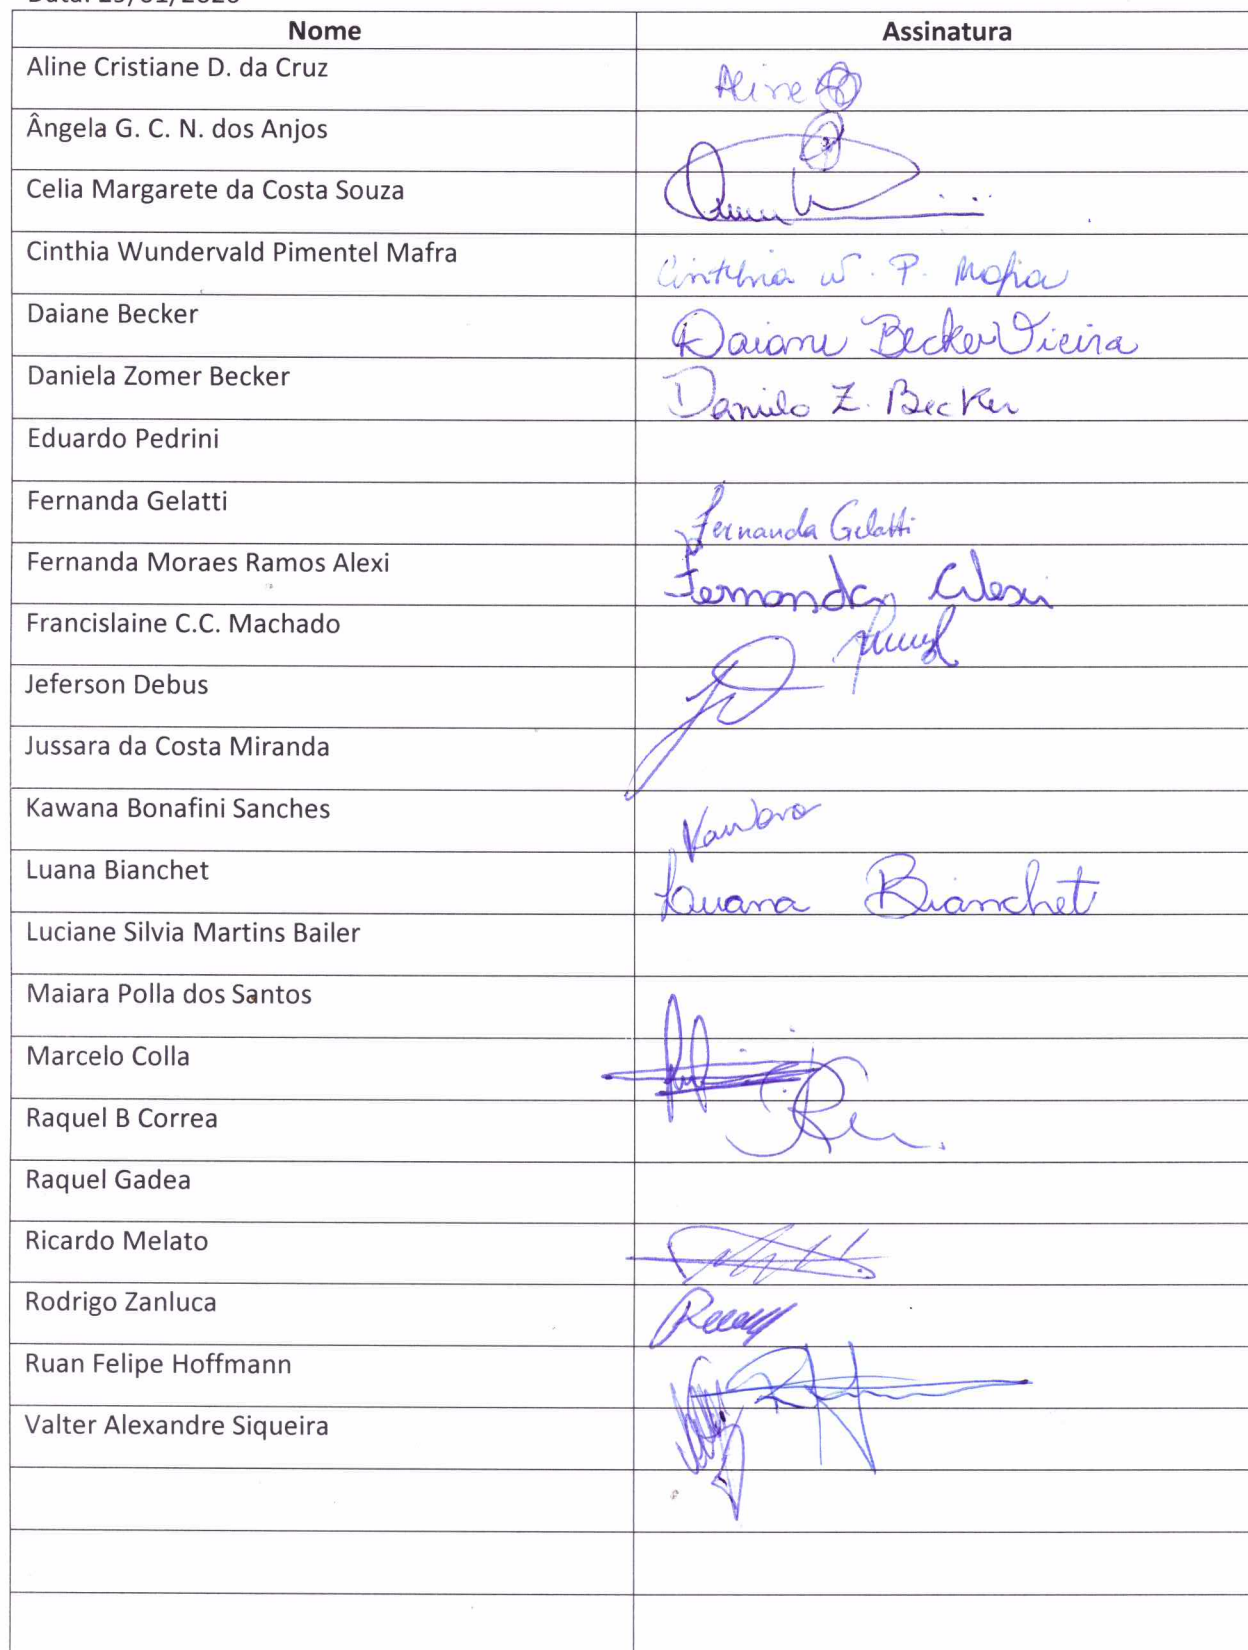 Nome Assinatura
Aline Cristiane D. da Cruz Aline
Ângela G. C. N. dos Anjos
Celia Margarete da Costa Souza
Cinthia Wundervald Pimentel Mafra Cinthia W. P. Mafra
Daiane Becker Daiane Becker Vieira
Daniela Zomer Becker Daniela Z. Becker
Eduardo Pedrini
Fernanda Gelatti Fernanda Gelatti
Fernanda Moraes Ramos Alexi Fernanda Alexi
Francislaine C.C. Machado
Jeferson Debus
Jussara da Costa Miranda
Kawana Bonafini Sanches Kawana
Luana Bianchet Luana Bianchet
Luciane Silvia Martins Bailer
Maiara Polla dos Santos
Marcelo Colla
Raquel B Correa
Raquel Gadea
Ricardo Melato
Rodrigo Zanluca
Ruan Felipe Hoffmann
Valter Alexandre Siqueira